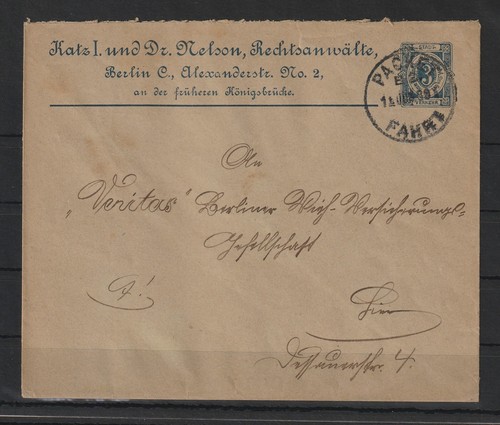 Katz I. und Dr. Nelson, Rechtsanwälte,
Berlin C., Alexanderstr. No. 2,
an der früheren Königsbrücke.
3
PACKET
FAHRT
An
„Veritas" Berliner Vieh-Versicherungs-
Gesellschaft
Hier
Dessauerstr. 4.